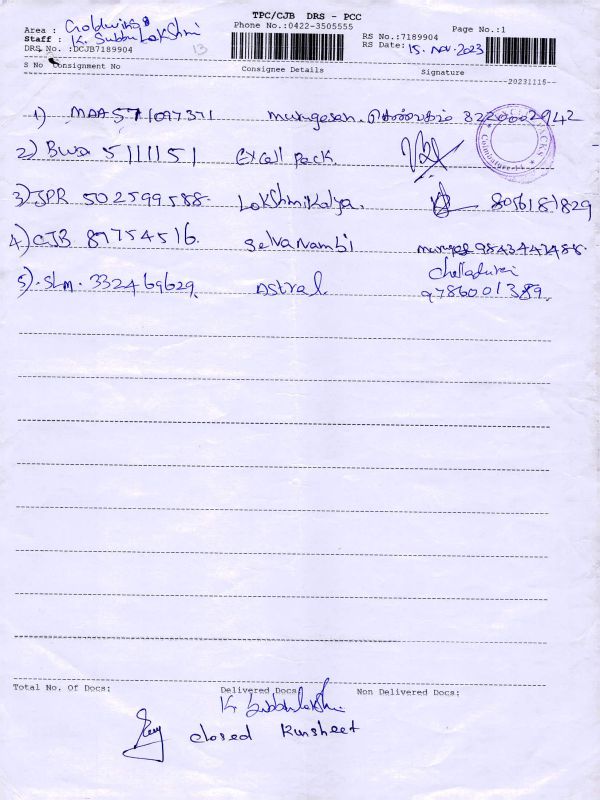 TPC/CJB DRS - PCC
Phone No.:0422-3505555
Area : Goldwins
Staff : K Subbu Lakshmi
DRS No. :DCJB7189904
13
RS No.:7189904
RS Date: 15. Nov. 2023
Page No.:1
S No Consignment No Consignee Details Signature
20231115
1) MAA571097371 murugesan. 8220002942
2) BWD 5111151 Excell pack.
3) JPR 502599588. Lakshmikalya. 8056187829
4) CJB 87754516. Selvanambi 9843447488.
5). SLM. 332469629. Astral Chelladurai
9786001389.
Coimbatore
Total No. Of Docs: Delivered Docs: Non Delivered Docs:
K Subbulakshmi
closed Runsheet